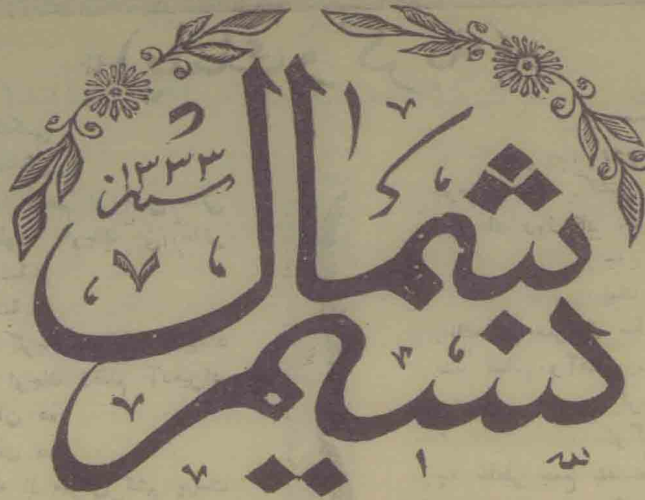 نسیم
شمال
سنه ۱۳۳۳